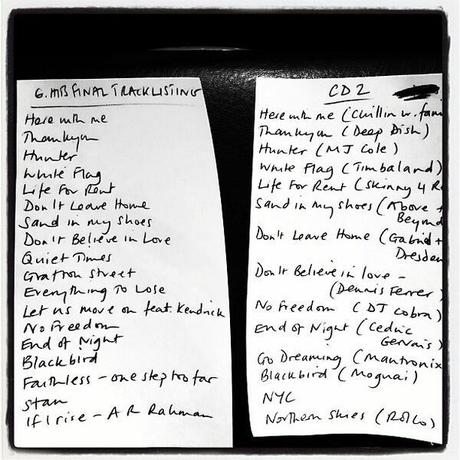 G.HITS FINAL TRACKLISTING
Here with me
Thankyou
Hunter
White Flag
Life For Rent
Don't Leave Home
Sand in my Shoes
Don't Believe in Love
Quiet Times
Grafton Street
Everything To Lose
Let us move on feat. Kendrick
No Freedom
End of Night
Blackbird
Faithless - one step too far
Stan
If I rise - A R Rahman
CD 2
Here with me (Chillin w. fam
Thankyou (Deep Dish)
Hunter (MJ Cole)
White Flag (Timbaland)
Life For Rent (Skinny 4 R
Sand in my shoes (Above +
Beyond
Don't Leave Home (Gabriel +
Dresden
Don't Believe in love -
(Dennis Ferrer)
No Freedom (DJ Cobra)
End of Night (Cedric
Gervais)
Go Dreaming (Mantronix
Blackbird (Moguai)
NYC
Northern Skies (Rollo)